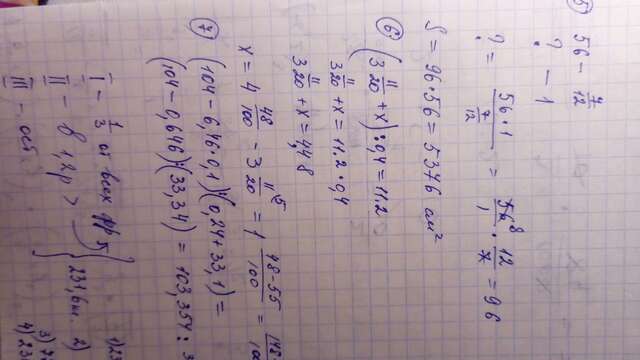 5)
56 - 7/12
? - 1
? = 56·1 / 7/12 = 56⁸/1 · 12/7 = 96
S = 96·56 = 5376 см²
6) (3 11/20 + x) : 0,4 = 11.2
3 11/20 + x = 11.2·0,4
3 11/20 + x = 4,48
x = 4 48/100 - 3 11⁵/20 = 1 48-55/100 =
7) (104 - 6,46·0,1) : (0,24 + 33,1) =
(104 - 0,646) : (33,34) = 103,354 :
I - 1/3 от всех
II - в 1,2р >
III - ост
231,6
2)
3)
4) 23